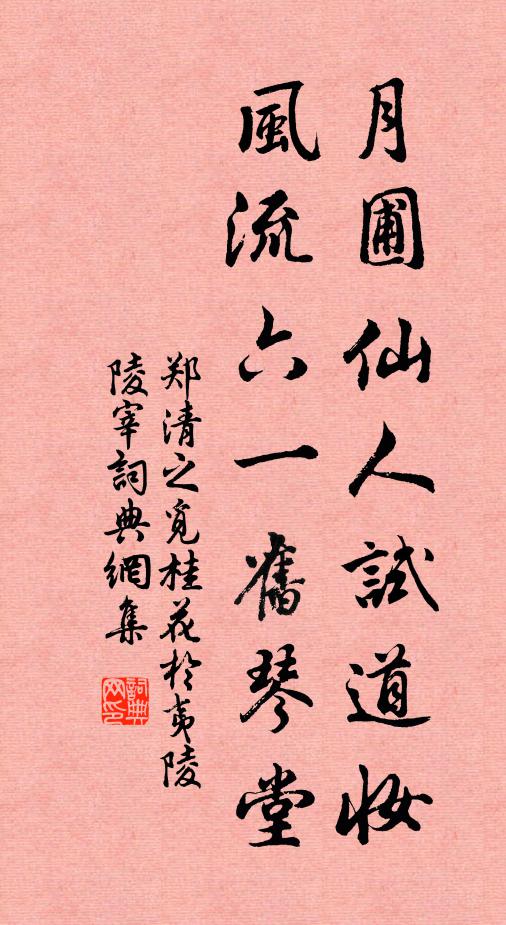 月圃仙人試道妝
風流六一舊琴堂
郑清之覓桂花於夷陵
陵宰詞典網集
詞典网印